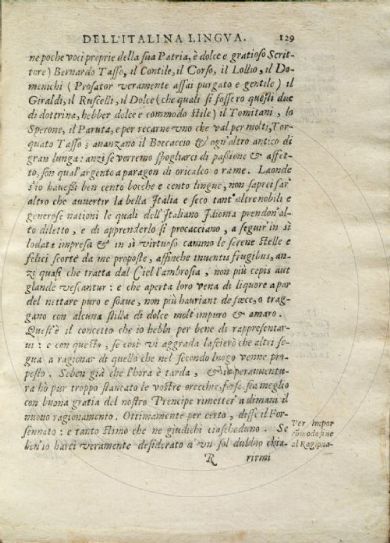 DELL'ITALINA LINGVA. 129
ne poche voci proprie della sua Patria, è dolce e gratioso Scrit-
tore) Bernardo Tasso, il Contile, il Corso, il Lollio, il Do-
menichi (Prosator veramente assai purgato e gentile) il
Giraldi, il Ruscelli, il Dolce (che quali si fossero questi due
di dottrina, hebber dolce e commodo stile) il Tomitani, lo
Sperone, il Paruta, e per recarne vno che val per molti, Tor-
quato Tasso; auanzano il Boccaccio & ogn'altro antico di
gran lunga: anzi se vorremo spogliarci di passione & affet-
to, son qual'argento a paragon di oricalco o rame. Laonde
s'io hauessi ben cento bocche e cento lingue, non saprei far
altro che auuertir la bella Italia e seco tant'altre nobili e
generose nationi le quali dell'Italiano Idioma prendon'al-
to diletto, e di apprenderlo si procacciano, a seguir in sì
lodata impresa & in sì virtuoso camino le serene stelle e
felici scorte da me proposte, affinche inuentis frugibus, an-
zi quasi che tratta dal Ciel l'ambrosia, non più cepis aut
glande vescantur: e che aperta loro vena di liquore a par
del nettare puro e soaue, non più hauriant de fæce, o trag-
gano con alcuna stilla di dolce molt'impuro & amaro.
Quest'è il concetto che io hebbi per bene di rappresentar-
ui: e con questo, se così vi aggrada lascierò che altri se-
gua a ragionar di quello che nel secondo luogo venne pro-
posto. Seben già che l'hora è tarda, & io perauuentu-
ra hò pur troppo stancato le vostre orecchie, forse sia meglio
con buona gratia del nostro Prencipe rimetter a dimani il
nuouo ragionamento. Ottimamente per certo, disse il For-
sennato: e tanto stimo che ne giudichi ciascheduno. Se
ben'io harei veramente desiderato a vn sol dubbio chia-
R rirmi